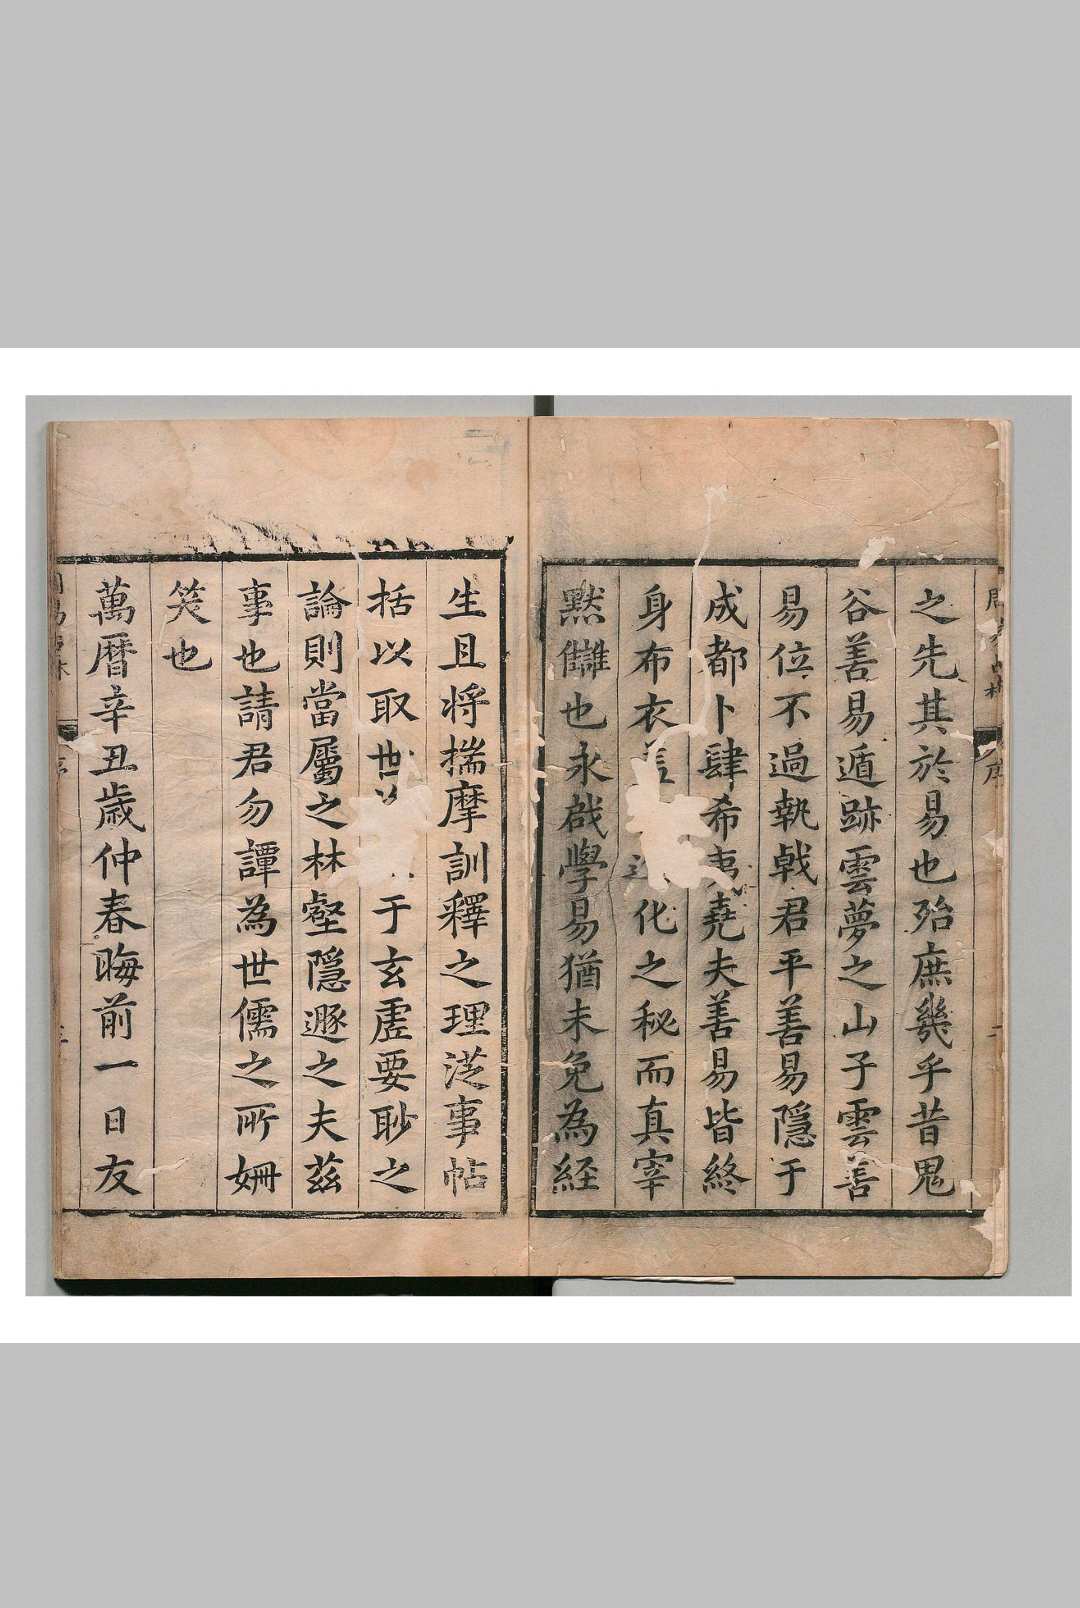 之先其於易也殆庶幾乎昔鬼
谷善易遁跡雲夢之山子雲善
易位不過執戟君平善易隠于
成都卜肆希夷堯夫善易皆終
身布衣 化之秘而真宰
黙讎也永戢學易猶未免為経
生且将揣摩訓釋之理涖事帖
括以取世 于玄虚要眇之
論則當屬之林壑隠遯之夫茲
事也請君勿譚為世儒之所姍
笑也
萬曆辛丑歳仲春晦前一日友